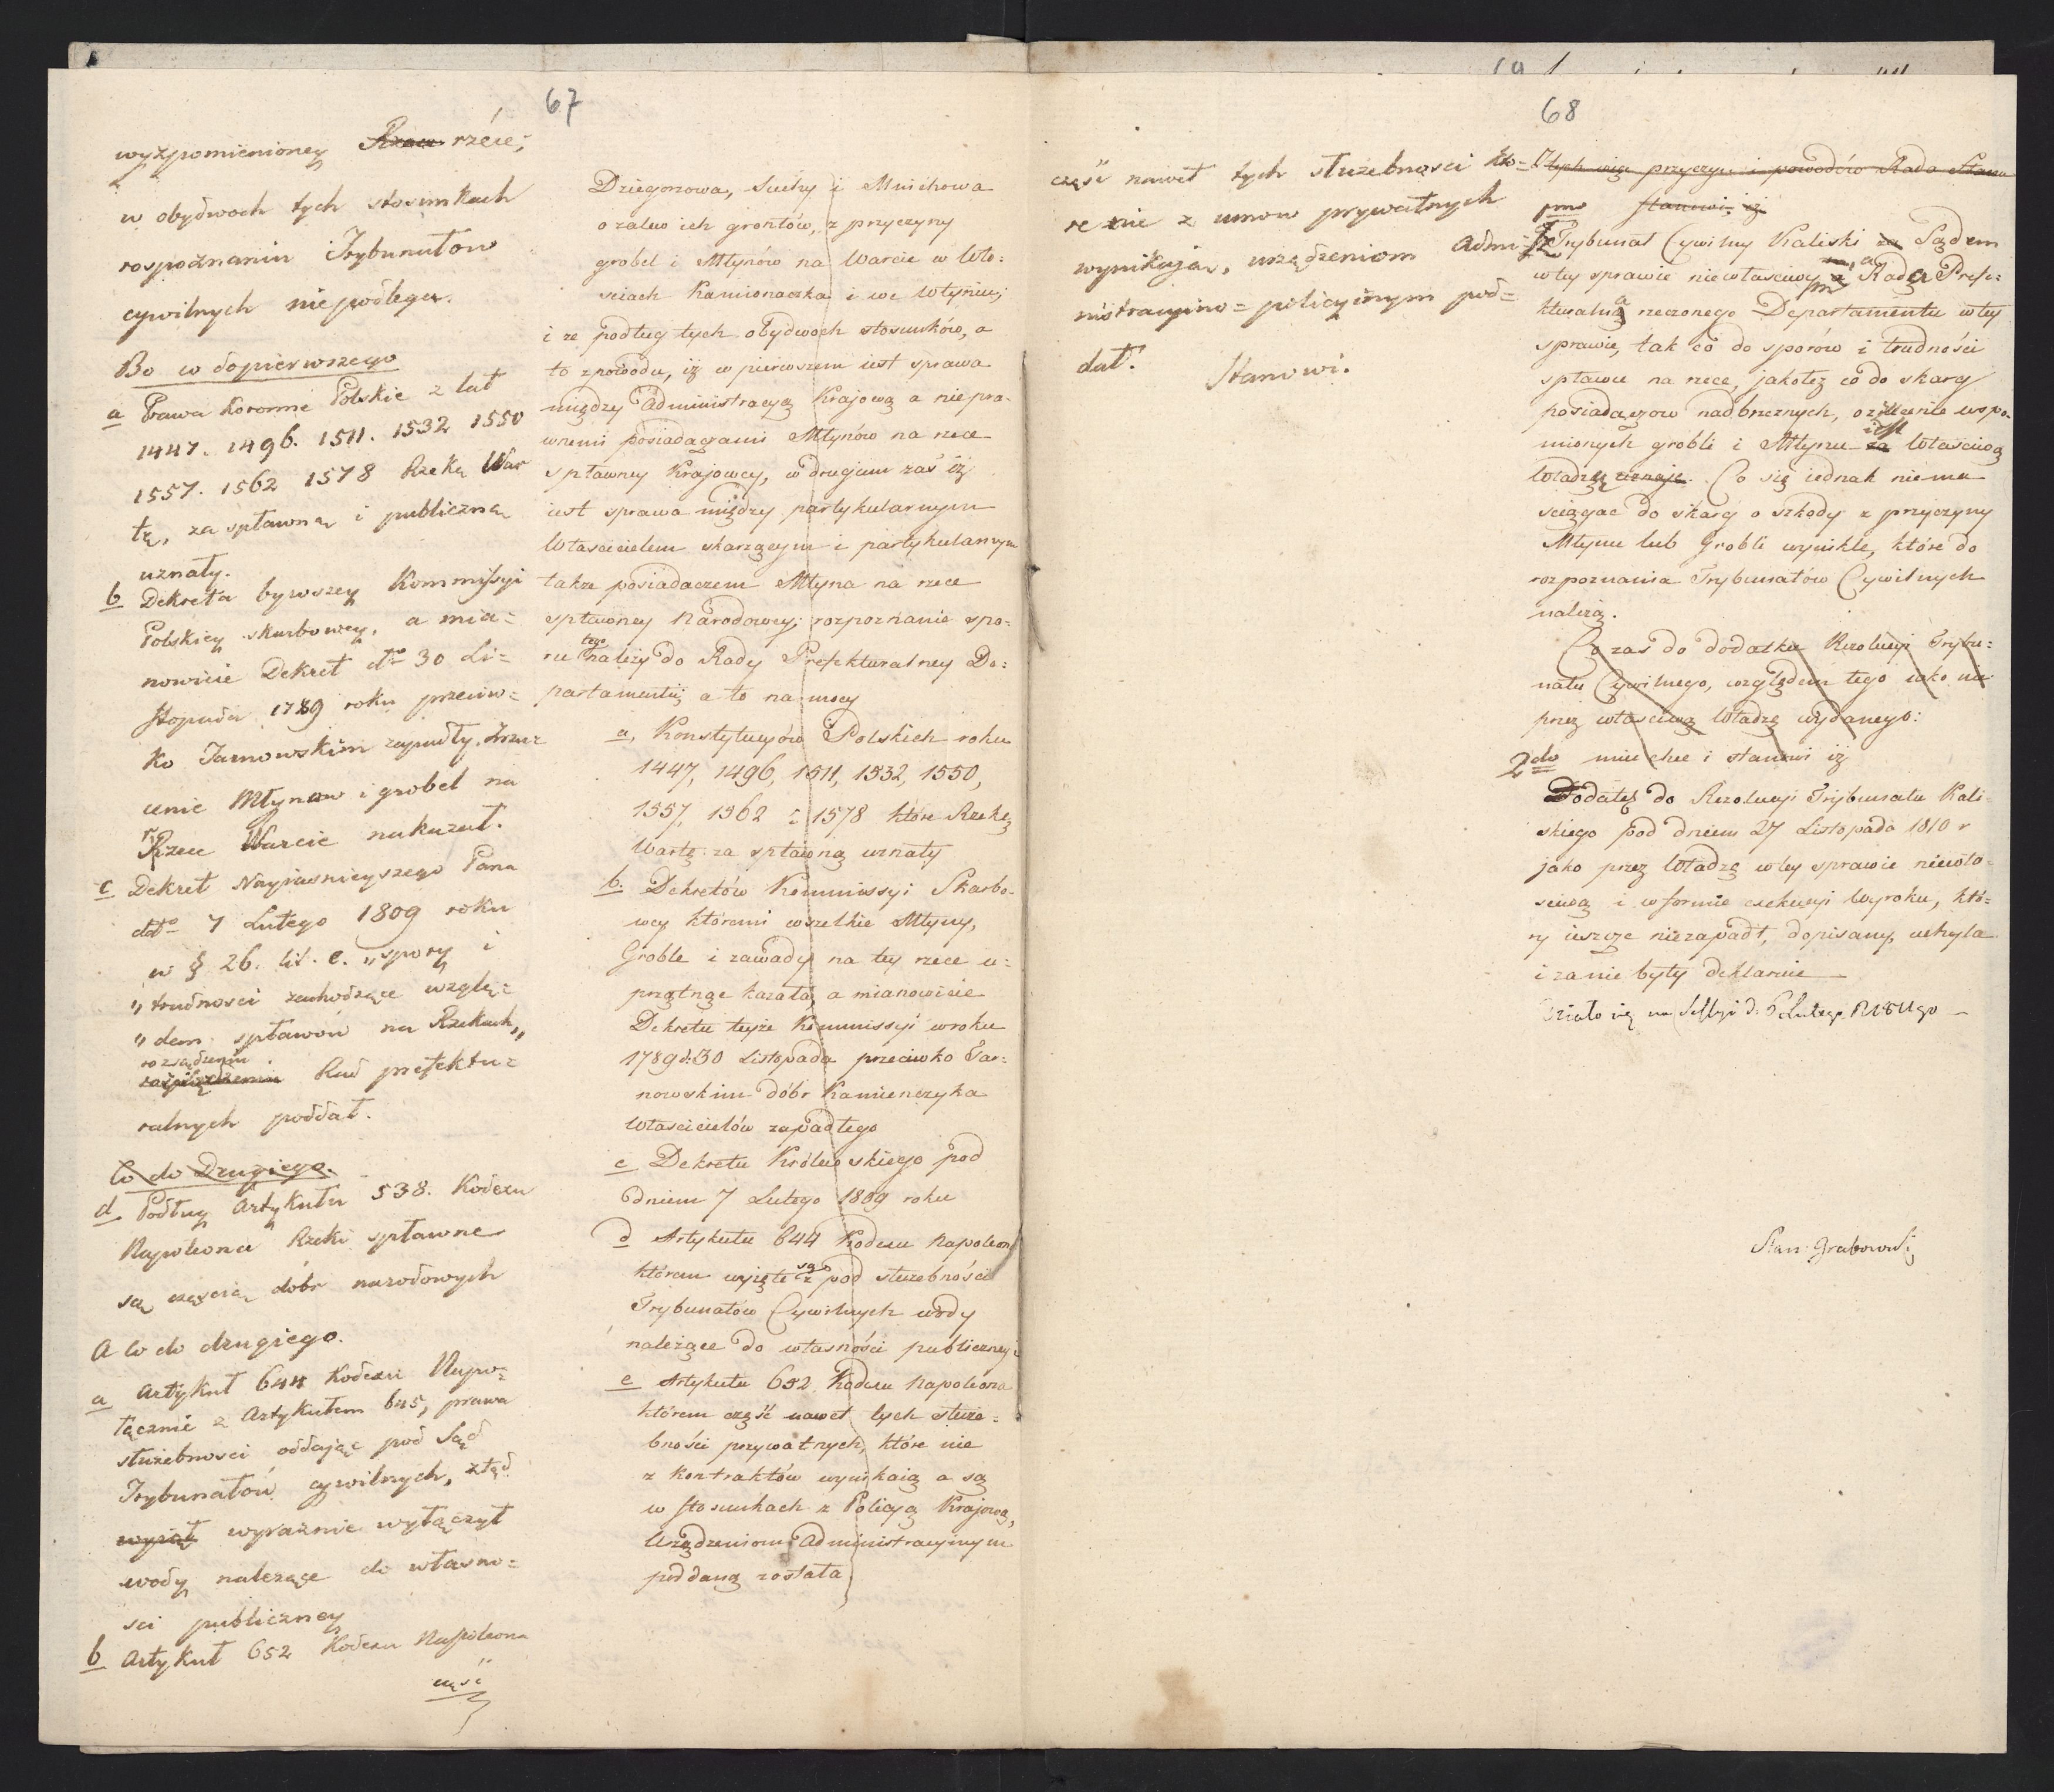 67
wyżpomienioney Rzece rzéce;
w obydwoch tych stosunkach
rospoznaniu Trybunałow
cywilnych niepodlega.
Bo co do pierwszego
a Prawa Koronne Polskie z lat
1447. 1496. 1511. 1532 1550
1557. 1562 1578 Rzekę War
tę, za spławną i publiczną
uznały.
b Dekreta bywszey Kommissyi
Polskiey skarbowey, a mia=
nowicie Dekret dto 30 Li=
stopada 1789 roku przeciw=
ko Tarnowskim zapadły, zrzu=
cenie Młynow i grobel na
Rzece Warcie nakazał.
c Dekret Nayiasnieyszego Pana
dto 7 Lutego 1809 roku
w § 26. lit. e. „spory i
„trudnosci zachodzące wzglę=
„dem spławów na Rzekach„
rozsądzeniu
Rad prefektu=
ralnych poddał.
Co do Drugiego.
d Podług Artykułu 538. Kodexu
Napoleona Rzeki spławne
są częscią dóbr narodowych
A co do drugiego.
a Artykuł 644 Kodexu Napo=
łącznie z Artykułem 645, prawa
służebnosci oddając pod Sąd
Trybunałów cywilnych, ztąd
wyiął wyraźnie wyłączył
wody należące do własno=
sci publiczney
b Artykuł 652 Kodexu Napoleona
część
Dziegorzowa, Suchy i Mnichowa
o zalew ich grontów, z przyczyny
grobel i Młynów na Warcie w Wło=
sciach Kamionaczka i we Włyniu;
i że podług tych obydwoch stosunków, a
to z powodu, iż w pierwszem iest sprawa
między Administracyą Krajową a niepra=
wnemi posiadaczami Młynów na rzece
spławney Krajowey, w drugiem zaś iż
iest sprawa między partykularnym
Włascicielem skarzącym i partykularnym
także posiadaczem Młyna na rzece
spławney Narodowey; rozpoznanie spo=
ru tego należy do Rady Prefekturalney De=
partamentu; a to na mocy
a, Konstytucyów Polskich roku
1447, 1496, 1511, 1532, 1550,
1557, 1562 i 1578 które Rzekę
Wartę za spławną uznały
b. Dekretów Kommissyi Skarbo=
wey któremi wszelkie Młyny,
Groble i zawady na tey rzece u=
przątnąć kazała, a mianowicie
Dekretu teyże Kommissyi w roku
1789 d: 30 Listopada przeciwko Tar=
nowskim dóbr Kamienczyka
Włascicielów zapadłego
c Dekretu Królewskiego pod
dniem 7 Lutego 1809 roku
d Artykułu 644 Kodexu Napoleona
którem wyjęte są z pod służebności
Trybunałów Cywilnych wody
należące do własności publiczney i
e Artykułu 652 Kodexu Napoleona
którem część nawet tych służe=
bności prywatnych, które nie
z kontraktów wynikaią a są
w stosunkach z Policyą Krajową,
Urządzeniom Administracyinym
poddaną została
68
część nawet tych służebnosci któ=
re nie z umow prywatnych
wynikają, urządzeniom Admi=
nistracyino=policyinym pod=
dał. Stanowi.
Z tych więc przyczyn i powodów Rada Stanu
pmo stanowi, iż
iż Trybunał Cywilny Kaliski za Sądem
w tey sprawie niewłasciwym, a Rada Prefe=
kturalna rzeczonego Departamentu w tey
sprawie, tak co do sporów i trudności
spławu na rzece, jakoteż co do skarg
posiadaczow nadbrzeżnych, o zniesienie wspo=
mionych grobli i Młynu iest za Właściwą
Władzą uznaje. Co się iednak niema
sciągać do skarg o szkody z przyczyny
Młynu lub Grobli wynikłe, które do
rozpoznania Trybunałów Cywilnych
należą.
Co zas do dodatku Rezolucyi Trybu=
nału Cywilnego, względem tego iako nie
przez właściwą Władzę wydanego:
2do mieć chce i stanowi iż
Dodatek do Rezolucyi Trybunału Kali=
skiego pod dniem 27 Listopada 1810 r
jako przez Władzę w tey sprawie niewła=
sciwą i w formie exekucyi Wyroku, któ=
ry ieszcze niezapadł, dopisany, uchyla
i za nie były deklaruie
Działo się na Sessyi d. 6 Lutego R 1811go
Stan: Grabowski